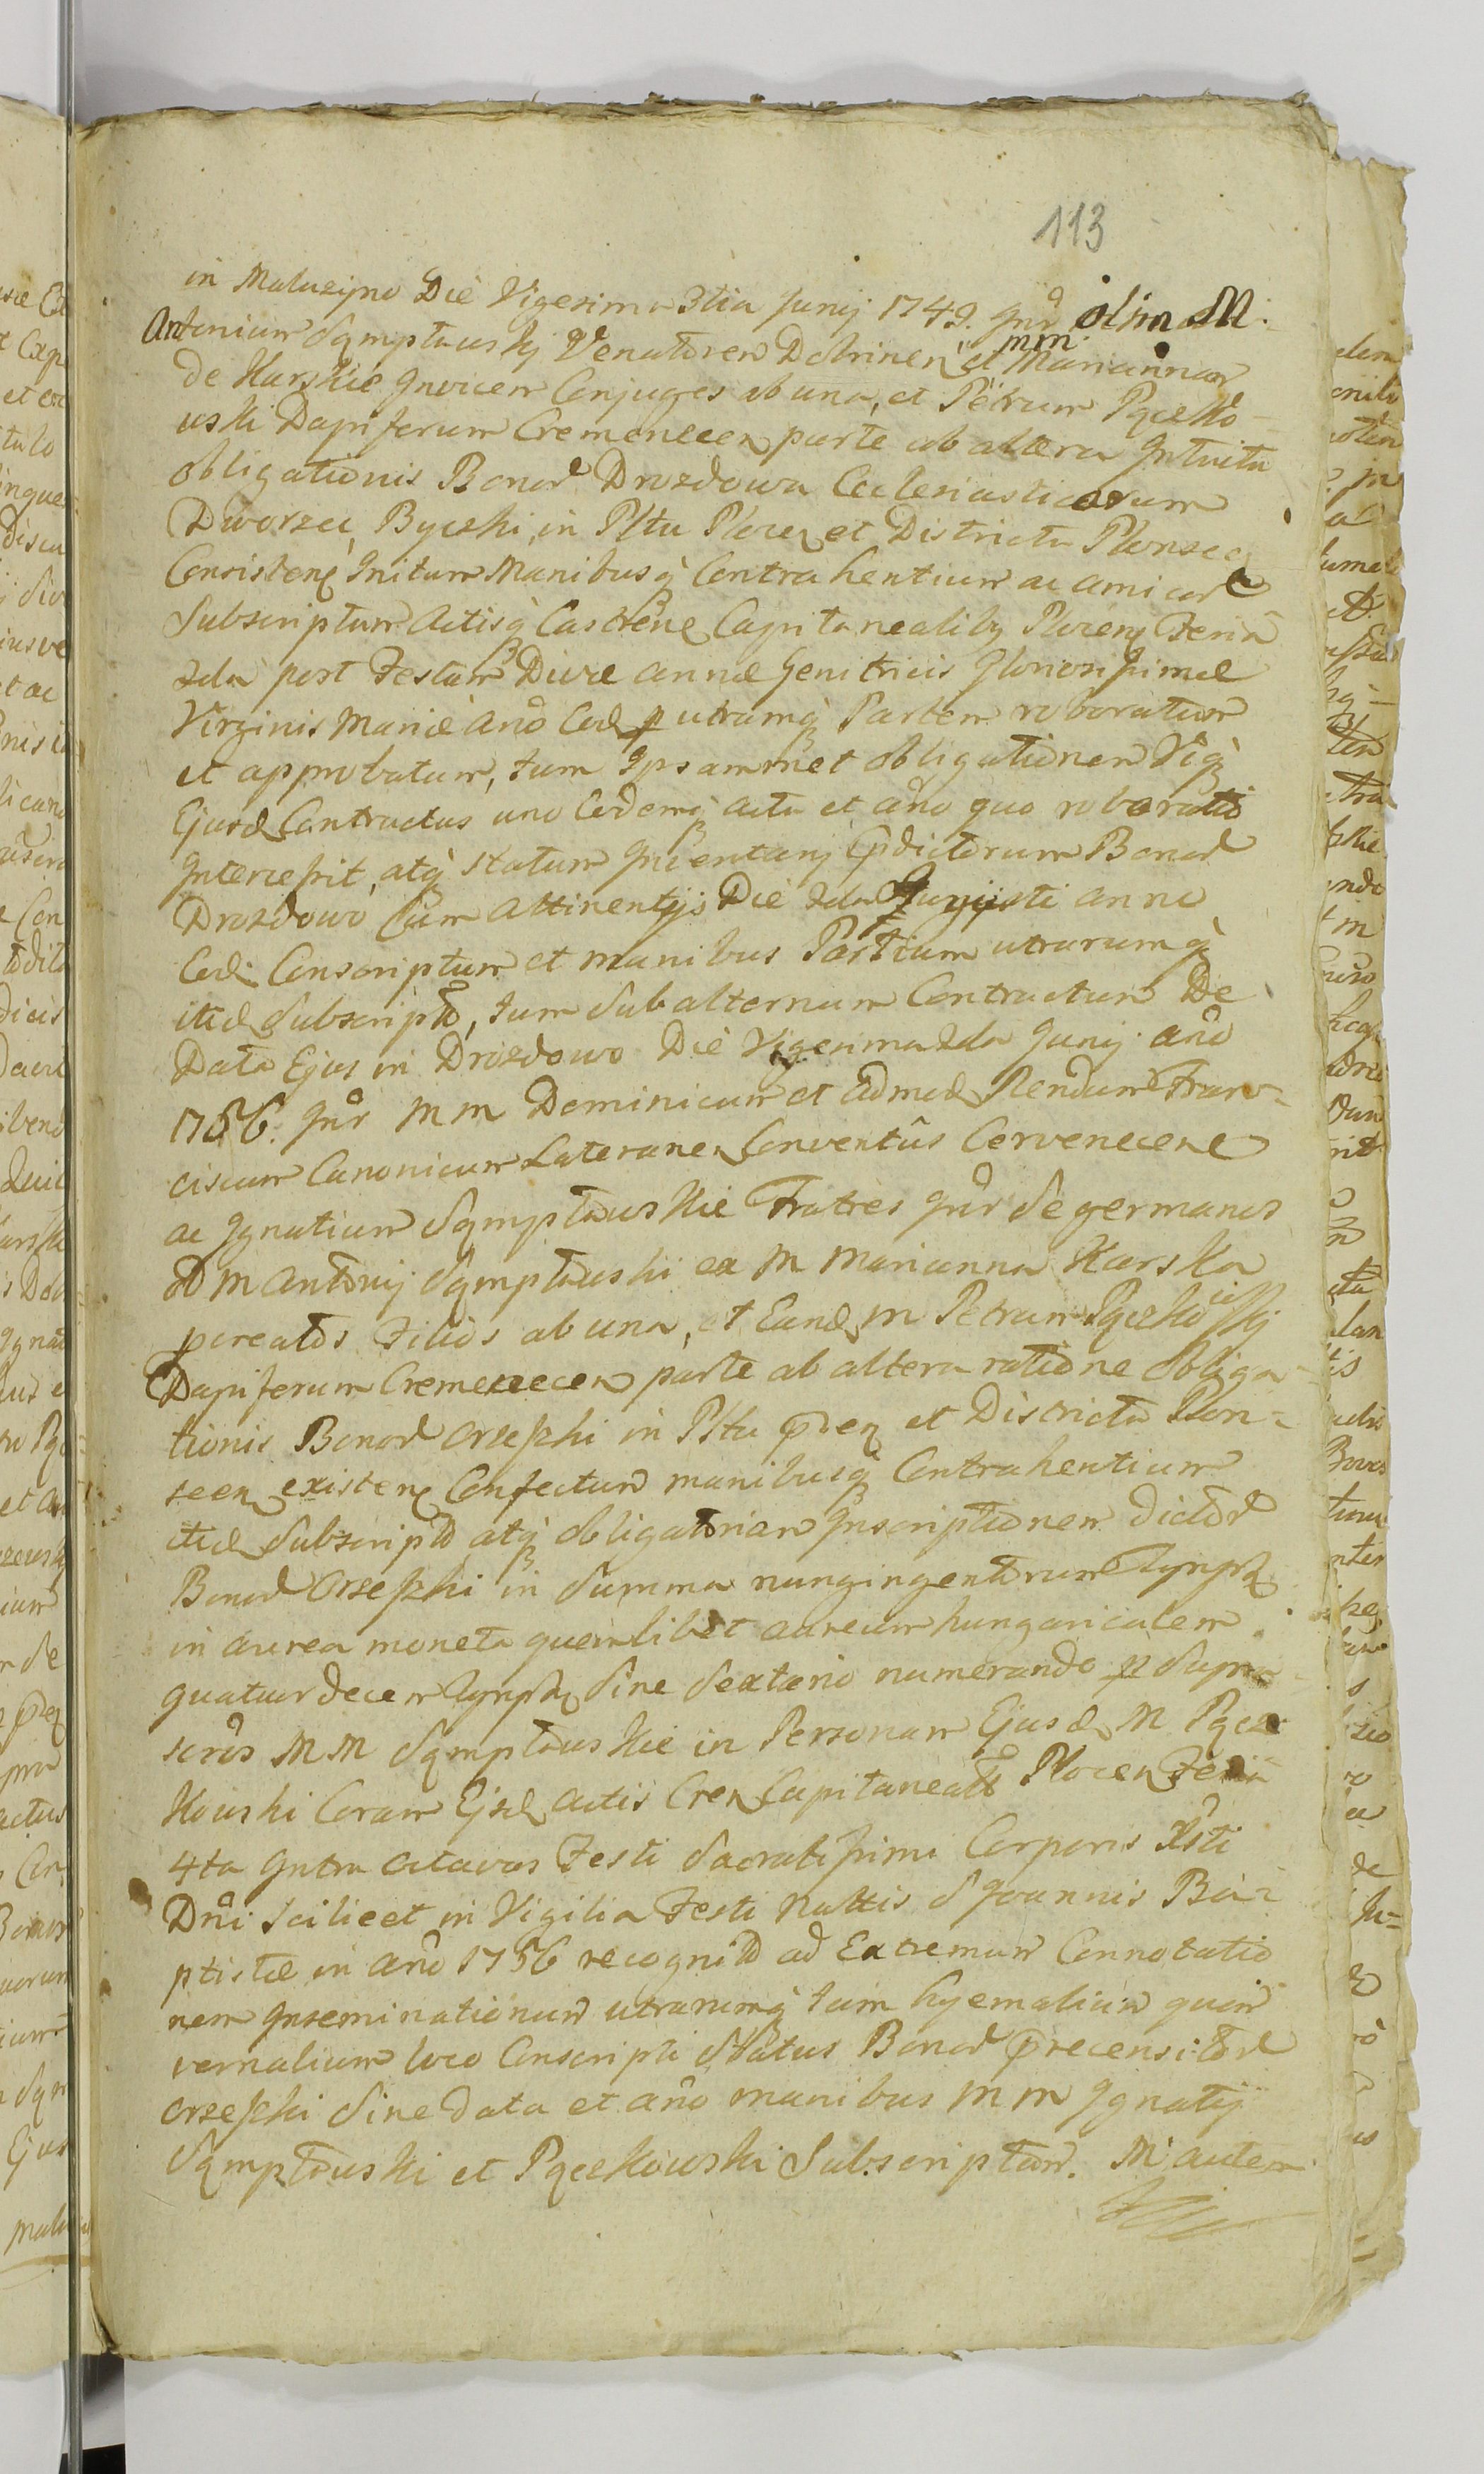 113
in Maluzyno Die Vigesima 3tia Junij 1749. Inr olim M.
Antonium Sqmptowskj Venatorem Dobrinen et mm Mariannam
de Karskie Invicem Conjuges ab una, et Petrum Pqczko-
wski Dapiferum Cremenecen parte ab altera Intuitu
obligationis Bonor Drozdowa Ecclesiasticorum
Dworzec, Byczki, in Pltu Plocen et Districtu Plonscen
Consisten Initum Manibusq Contrahentium ac amicor
Subscriptum Actisq Castren Capitanealibq Plocen Feria
2da post Festum Divae Annae Genitricis Gloriosissimae
Virginis Mariae Ano Eod p utramq Partem roboratum
et approbatum, tum Ipsammet obligationem Vig
Ejusd Contractus uno Eodemq actu et ano quo roboratio
Intercessit, atq statum Inventarij Pdictorum Bonor
Drozdowo cum Attinentijs Die 2da Augusti anno
Eod Conscriptum et manibus Partium utrarumq
itid Subscriptu, tum Subalternum Contractum De
Data Ejus in Drozdowo Die Vigesima 2da Junij ano
1756. Inr MM Dominicum et Admod Rendum Fran-
ciscum Canonicum Lateranen Conventus Cervenecen
ac Ignatium Sqmptowskie Fratres Inr Se germanos
M Antonij Sqmptowski ex M Marianna Karska
pcreatos Filios ab una, et Eund M Petrum Pqczkowskj
Dapiferum Cremenecen parte ab altera ratione Obliga-
tionis Bonor Arzeszki in Pltu Pen et Districtu Plon-
scen existen Confectum manibusq Contrahentium
itid Subscriptu atq obligatoriam Inscriptionem dictor
Bonor Arzeszki in Summa nungingentorum Tynph
in aurea moneta quemlibet aureum hungaricalem
quatuordecem Tynph Sine Sextario numerando p Supra-
scros MM Sqmptowskie in Personam Ejusd M Pqcz-
kowski Coram Ejsd Actis Cren Capitanealib Plocen Feria
4ta Intra octavas Festi Sacratissimi Corporis Xsti
Dni Scilicet in Vigilia Festi Nattis S Joannis Ba-
ptistae in Ano 1756 recognitu ad Extremum Connotatio
nem Inseminationum utrarumq tam hyemalium quam
vernalium loco Conscripti Status Bonor Precensitor
Arzeszki Sine Data et ano manibus MM Ignatij
Sqmptowski et Pqczkowski Subscriptam. M autem